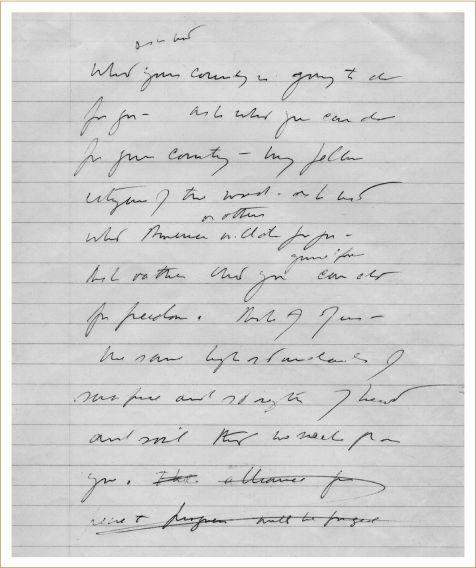 ask not
what your country is going to do
for you - ask what you can do
for your country - my fellow
citizens of the world - ask not
or others
what America will do for you -
ask rather what you can do
for freedom. Ask of us -
the same high standards of
sacrifice and strength of heart
and will that we seek from
you. The alliance for
will be forged